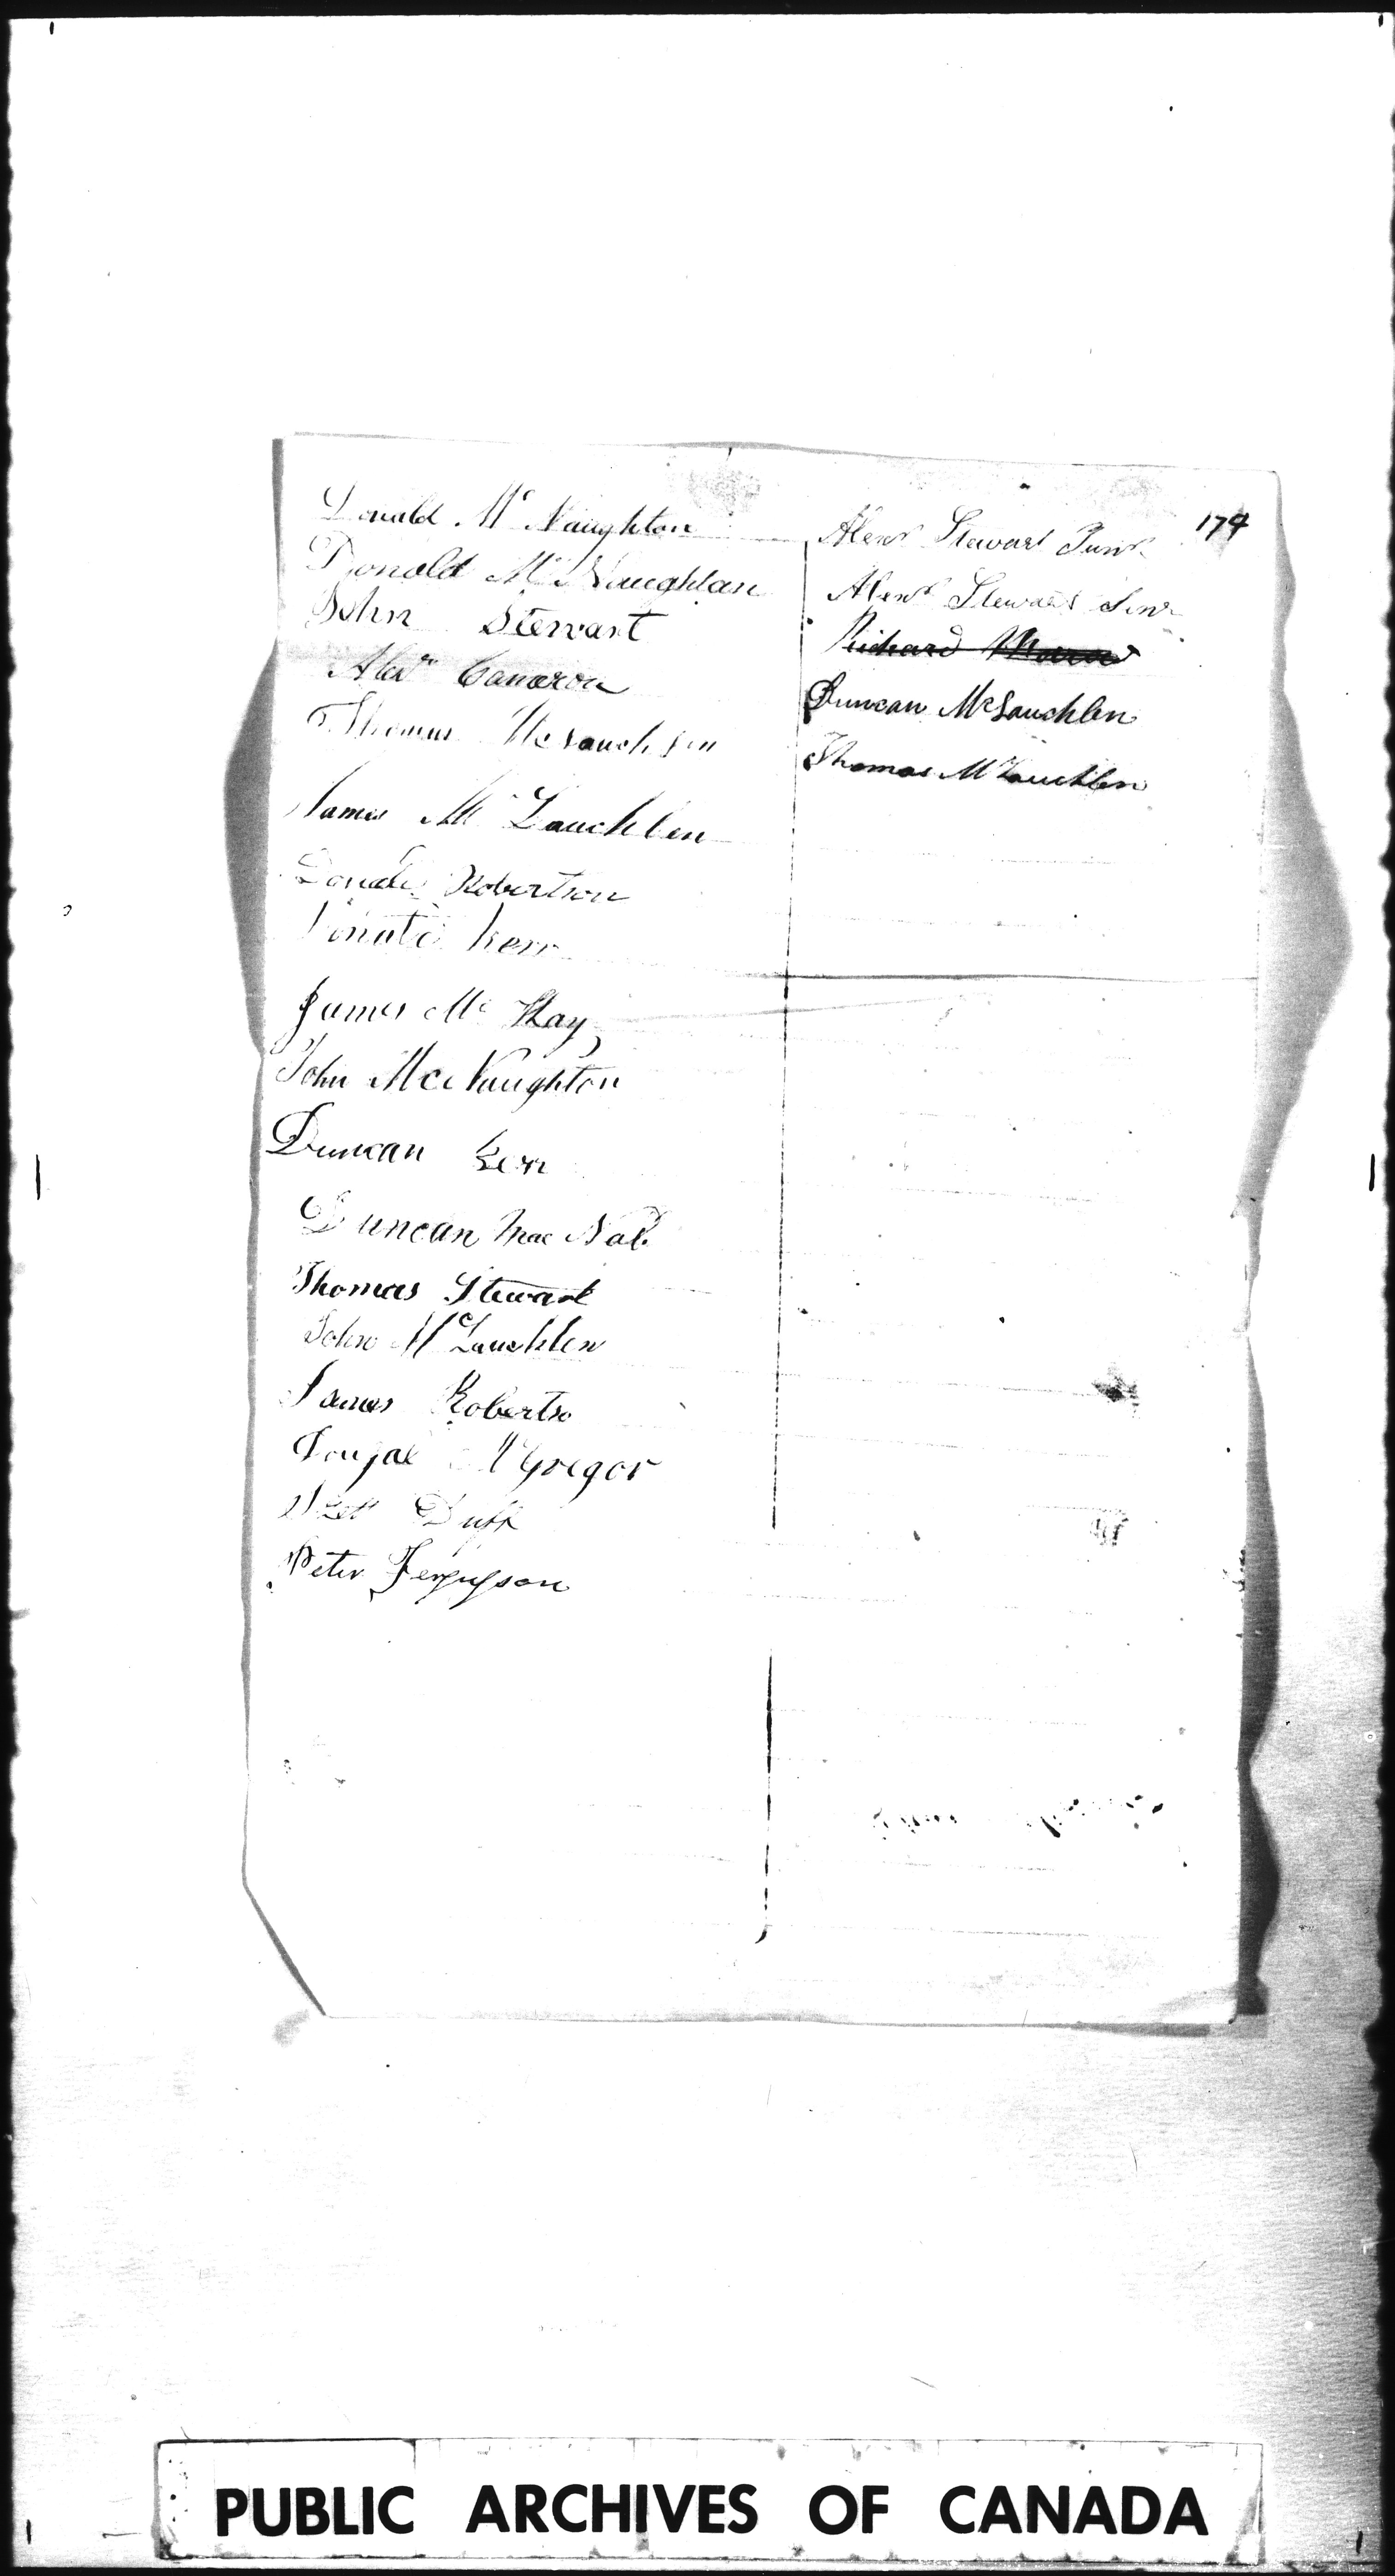 Donald Mc Naughton
Donald Mc Naughtan
John Stewart
Alexr Cameron
Thomas McLauchlin
James Mc Lauchlen
Donald Robertson
Donald Kerr
James Mc Kay
John McNaughton
Duncan Kerr
Duncan Mac Nab
Thomas Stewart
John Mc Lauchlen
James Robertso
Dougal McGregor
Duff
Peter Fergusson
174
Alexr Stewart Junr
Alexr Stewart Senr
Richard
Duncan McLauchlen
Thomas McLauchlen
PUBLIC ARCHIVES OF CANADA